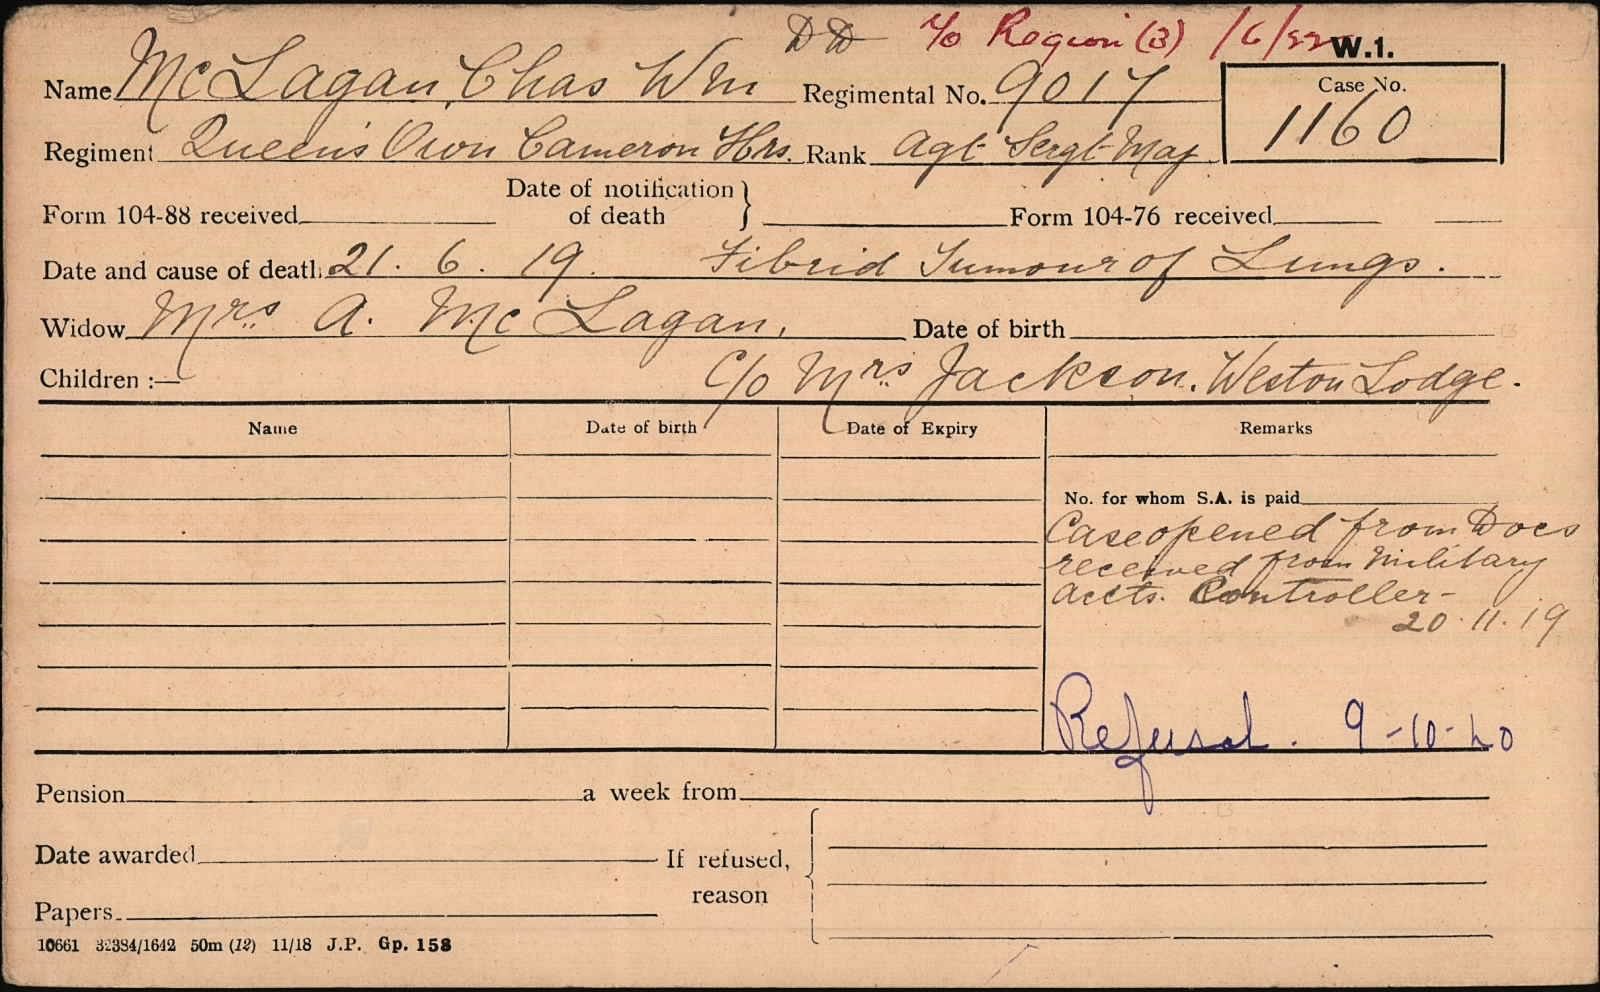 DD T/o Region (3) 1/6/22 W.1.
Name McLagan, Chas Wm Regimental No. 9017 Case No.
1160
Regiment Queen's Own Cameron Hrs. Rank Agt Sergt Maj
Date of notification
Form 104-88 received of death Form 104-76 received
Date and cause of death 21. 6. 19. Fibrid Tumour of Lungs.
Widow Mrs A. McLagan, Date of birth
Children :— C/o Mrs Jackson. Weston Lodge.
Name Date of birth Date of Expiry Remarks
No. for whom S.A. is paid
Case opened from Docs
received from Military
Accts. Controller-
20.11.19
Refusal. 9-10-20
Pension a week from
Date awarded If refused,
reason
Papers
10661 32384/1642 50m (12) 11/18 J.P. Gp. 158